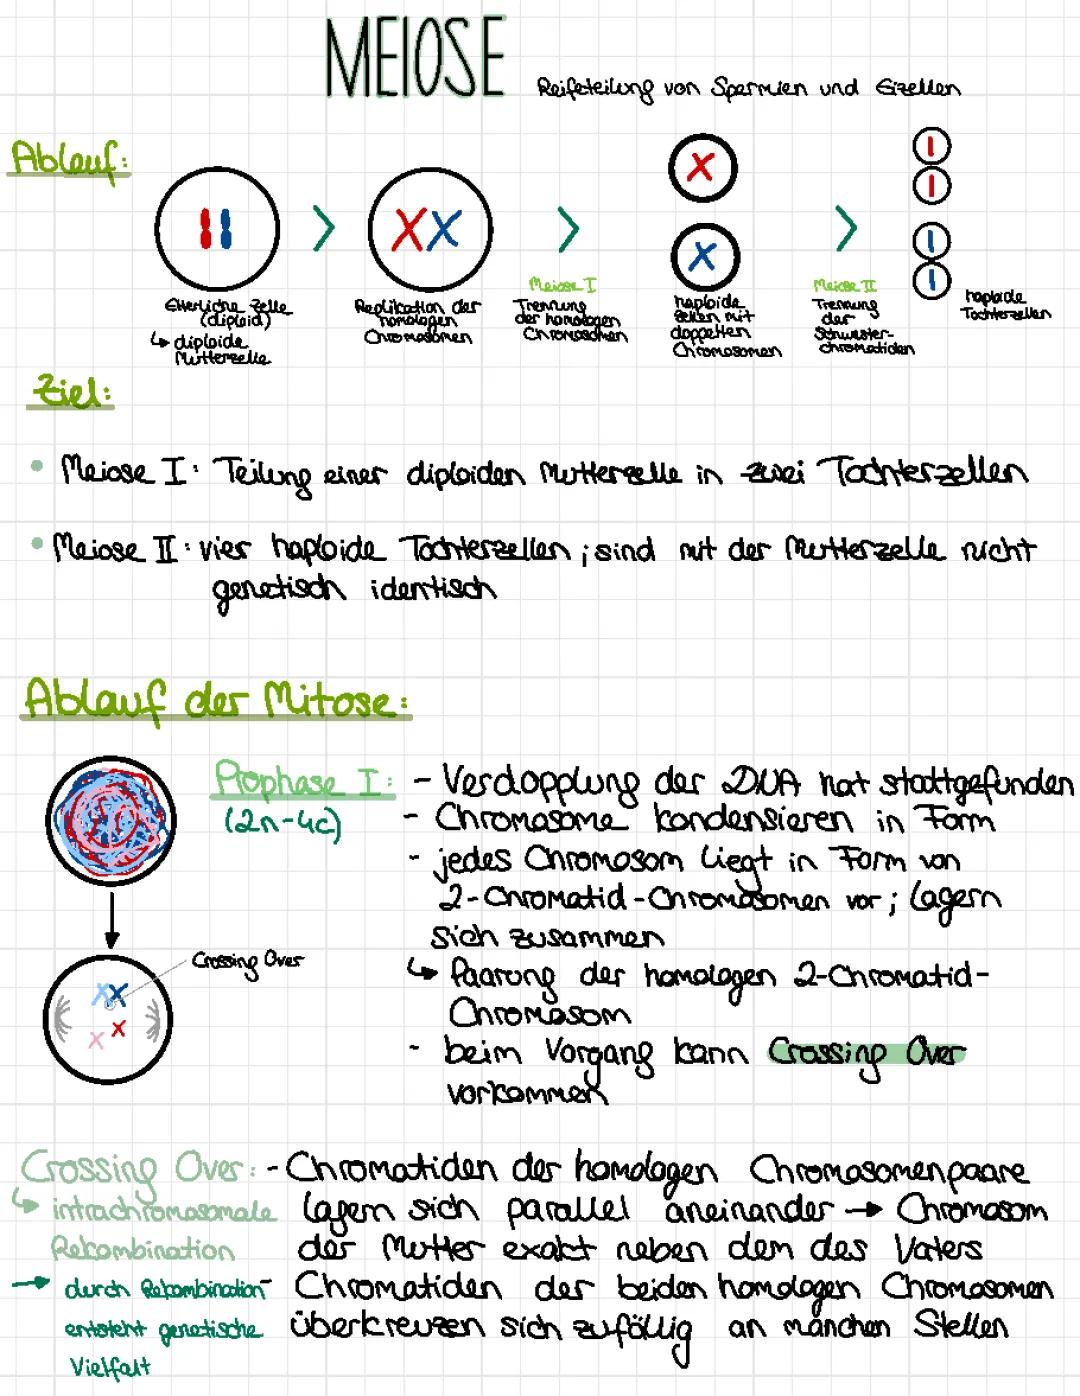 MEIOSE
Reifeteilung von Spermien und Eizellen
Ablauf:
Elterliche Zelle
(diploid)
↳ diploide
Mutterzelle
Replikation der
homologen
Chromosomen
Meiose I
Trennung
der homologen
Chromosomen
haploide
Zellen mit
doppelten
Chromosomen
Meiose II
Trennung
der
Schwester-
chromatiden
haploide
Tochterzellen
Ziel:
• Meiose I: Teilung einer diploiden Mutterzelle in zwei Tochterzellen
• Meiose II: vier haploide Tochterzellen; sind mit der Mutterzelle nicht
genetisch identisch
Ablauf der Mitose:
Prophase I: - Verdopplung der DNA hat stattgefunden
(2n-4c) - Chromosome kondensieren in Form
- jedes Chromosom liegt in Form von
2-Chromatid-Chromosomen vor; lagern
sich zusammen
Crossing Over
↳ Paarung der homologen 2-Chromatid-
Chromosom
- beim Vorgang kann Crossing Over
vorkommen
Crossing Over: - Chromatiden der homologen Chromosomenpaare
↳ intrachromosomale lagern sich parallel aneinander → Chromosom
Rekombination der Mutter exakt neben dem des Vaters
→ durch Rekombination - Chromatiden der beiden homologen Chromosomen
entsteht genetische überkreuzen sich zufällig an manchen Stellen
Vielfalt